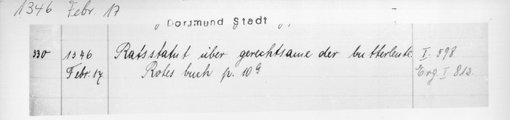 1346 Febr. 17
„Dortmund Stadt“
330 1346 Ratsstatut über gerechtsame der butterleute I. 598
Febr. 17 Rotes buch p. 10a Erg. I 813.